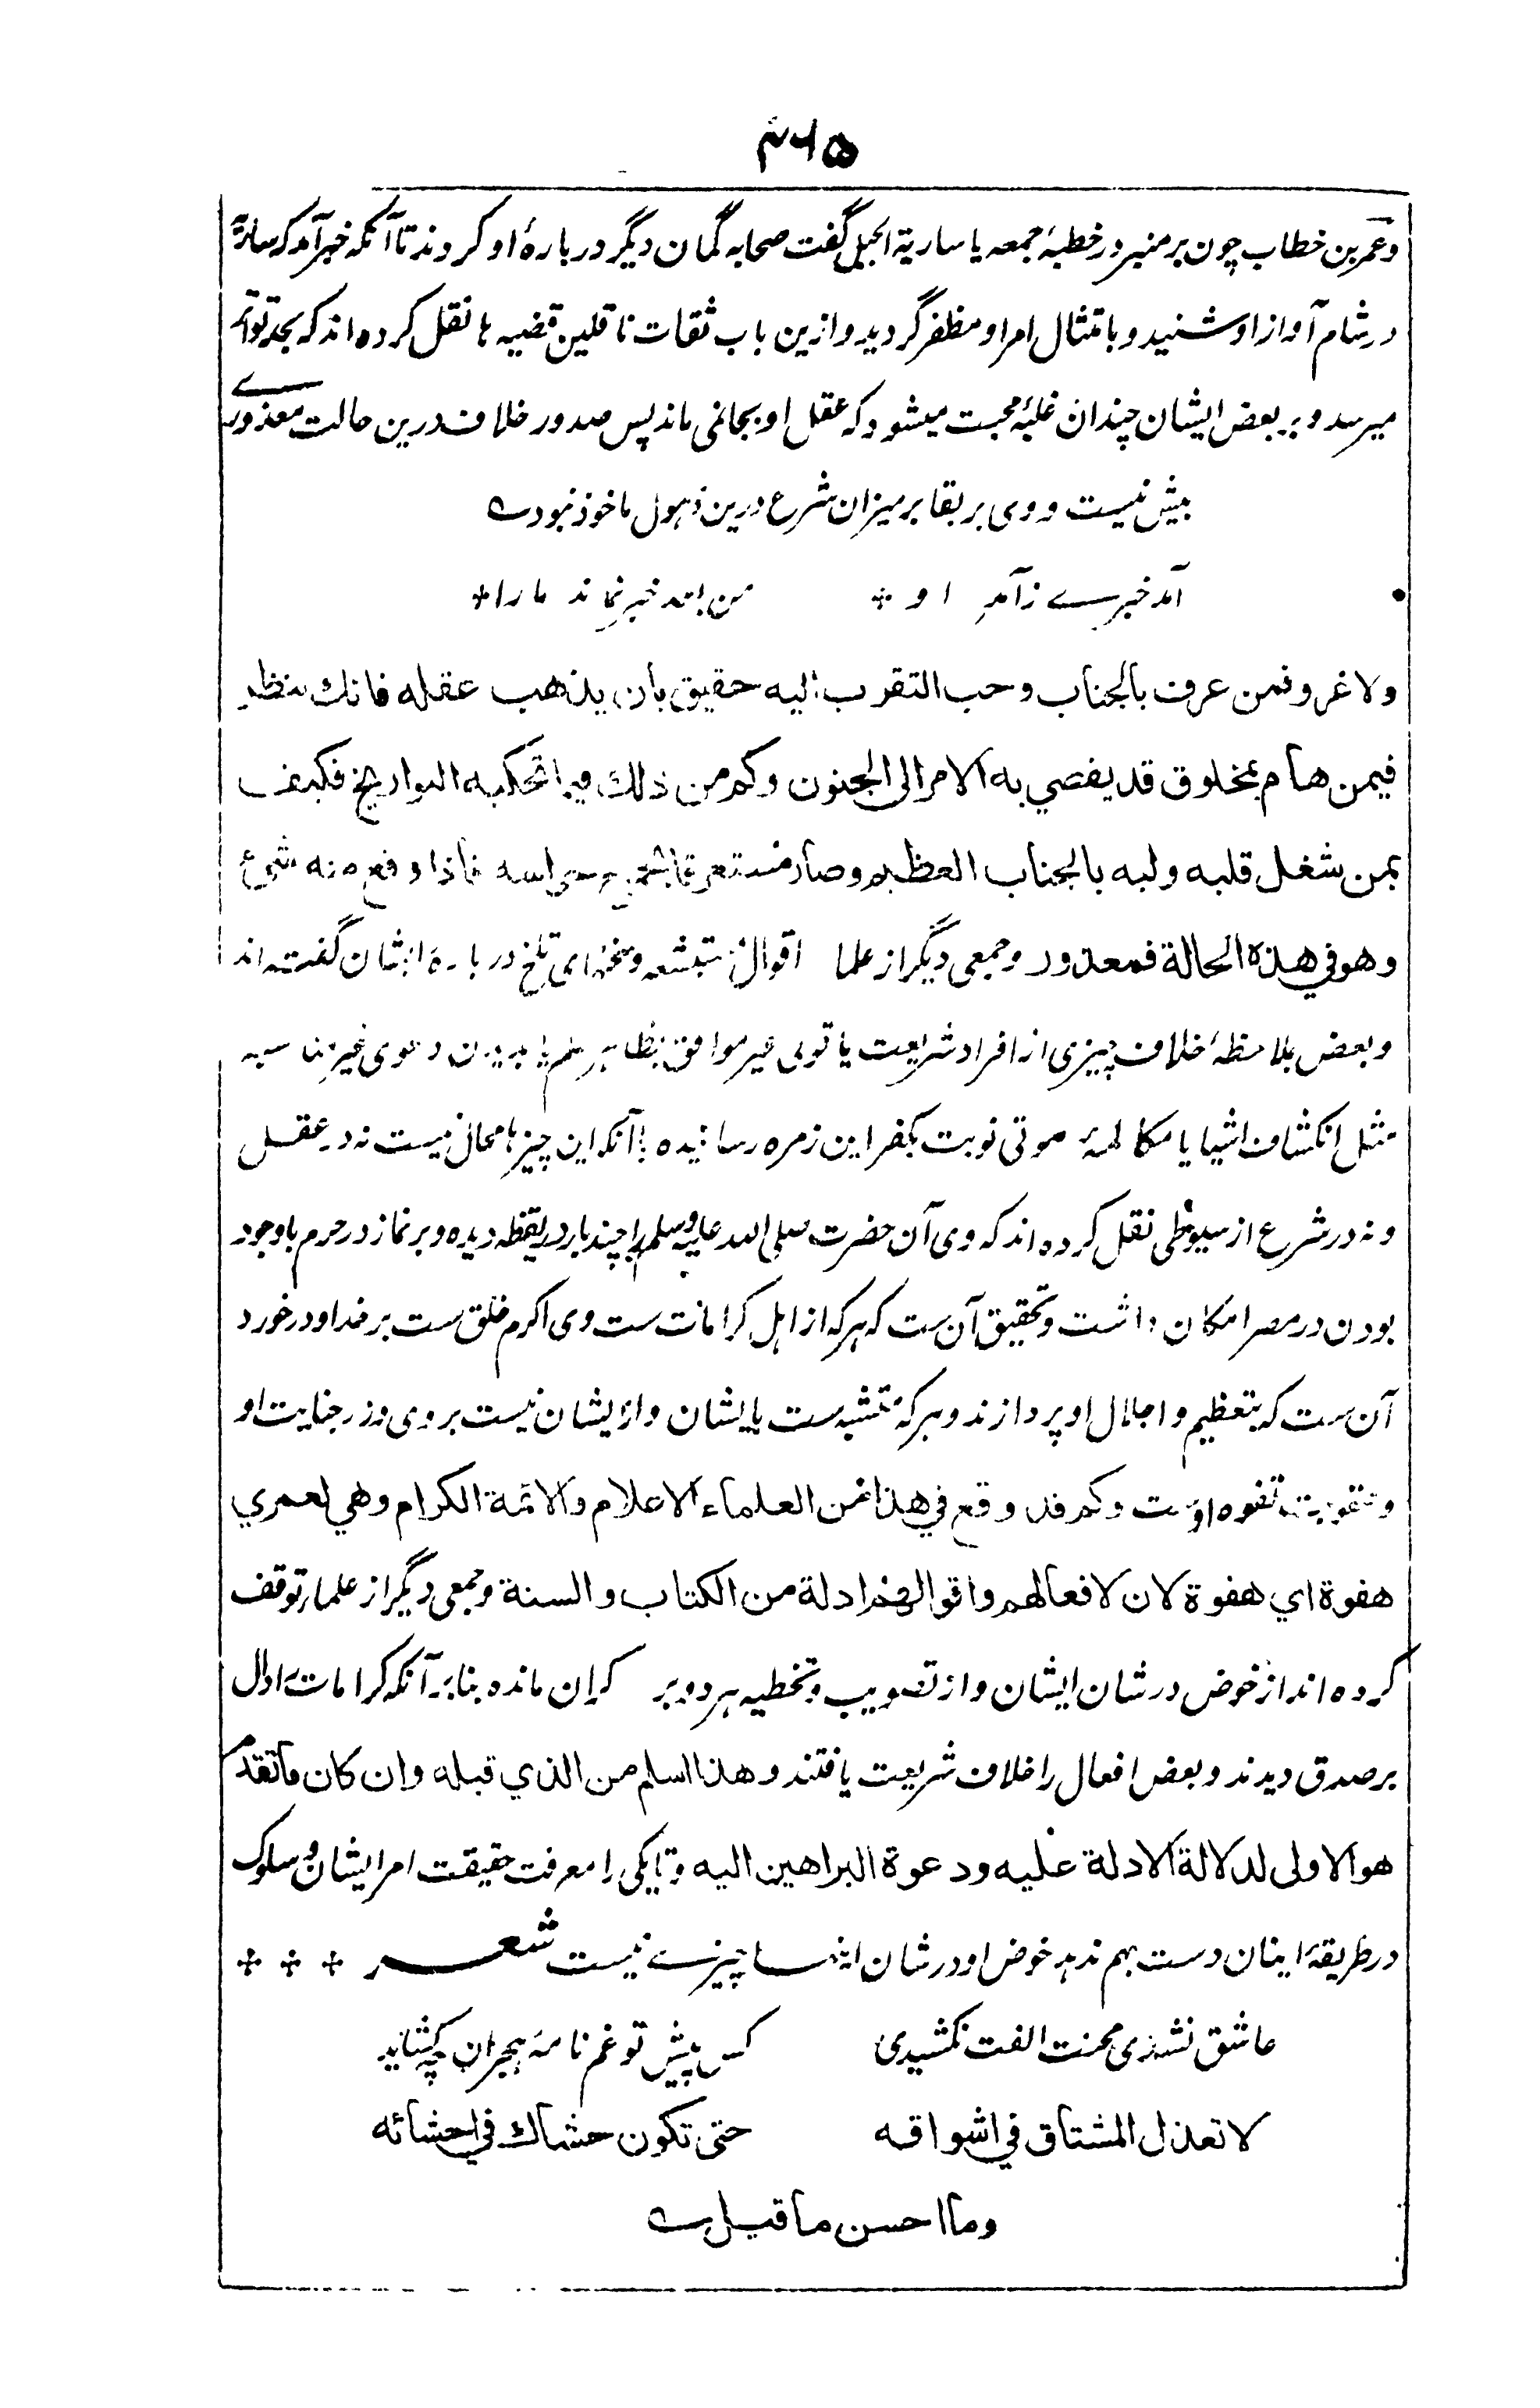 ۴۶۵
وعمر بن خطاب چون بر منبر در خطبهٔ جمعه یا ساریة الجبل گفت صحابه گمان دیگر دربارهٔ او کردند تا آنکه خبر آمد که ساریه
در شام آواز او شنید و بامتثال امر او مظفر گردید و ازین باب ثقات ناقلین قضیه ها نقل کرده اند که بحد تواتر
میرسد و بر بعض ایشان چندان غلبهٔ محبت میشود که عقل او بجا نمی ماند پس صدور خلاف درین حالت معذورے
بیش نیست و وی بر بقا بر میزان شرع درین ذہول ماخوذ نبود ے
آمد خبرے ز آمد او من بعد خبر نماند ما را
ولا غرو فمن عرف بالجناب وحب التقرب اليه حقيق بان يذهب عقله فانك تنظر
فيمن هام بمخلوق قد يفضي به الامر الى الجنون وكم من ذلك فيما تحكيه التواريخ فكيف
بمن شغل قلبه ولبه بالجناب العظيم وصار مستغرقا فاذا وقع منه شيء
وهو في هذه الحالة فمعذور وجمعی دیگر از علما اقوال متبشعه وسخنهای تلخ دربارهٔ ایشان گفته اند
وبعض بملاحظهٔ خلاف چیزی از افراد شریعت یا قولی غیر موافق بظاهر دعوی غیر مناسبه
مثل انکشاف اشیا یا مکالمهٔ موتی نوبت بکفر این زمره رسانیده با آنکه این چیزها محال نیست نه در عقل
و نه در شرع از سیوطی نقل کرده اند که وی آن حضرت صلی الله علیه وسلم را چند بار در یقظه دیده و بر نماز در حرم باوجود
بودن در مصر امکان داشت و تحقیق آن ست که هر که از اهل کرامات ست وی اکرم خلق ست بر خدا و در خورد
آن ست که بتعظیم و اجلال او پردازند و هر که متشبه ست بایشان و از ایشان نیست بر وی وزر جنایت او
وعقوبت تفوه اوست وكم قد وقع في هذا من العلماء الاعلام والائمة الكرام وهي لعمري
هفوة اي هفوة لان لافعالهم واقوالهم ادلة من الكتاب والسنة وجمعی دیگر از علما توقف
کرده اند از خوض در شان ایشان و از تصویب و تخطیه هر دو بر کران مانده بنا بر آنکه کرامات را دال
بر صدق دیدند و بعض افعال را خلاف شریعت یافتند وهذا اسلم من الذي قبله وان كان ما تقدم
هو الاولى لدلالة الادلة عليه ودعوة البراهين اليه وتا یکی را معرفت حقیقت امر ایشان وسلوک
در طریقهٔ اینان دست بهم ندهد خوض او در شان اینها چیزے نیست شعر
عاشق نشدی محنت الفت نکشیدی کس پیش تو غم نامهٔ هجران چه کشاید
لا تعذل المشتاق في اشواقه حتى تكون حشاك في احشائه
وما احسن ما قيل ے